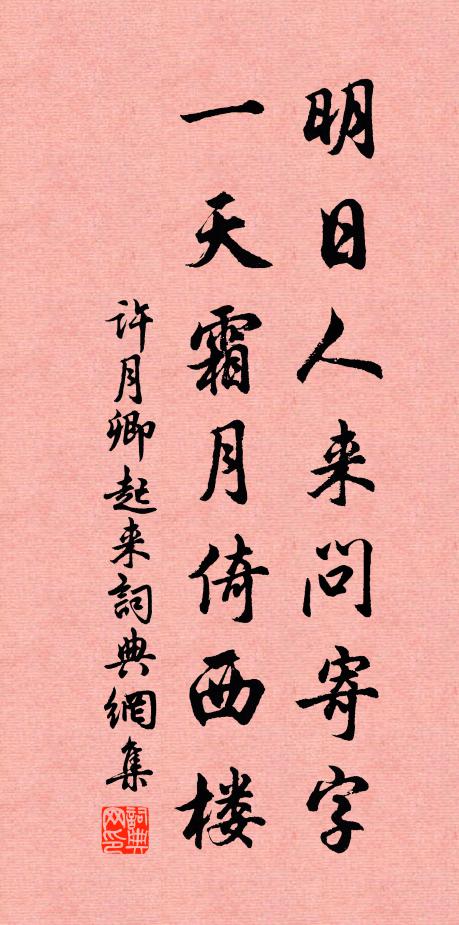 明日人来问寄字
一天霜月倚西楼
许月卿起来詞典網集
詞典
网印